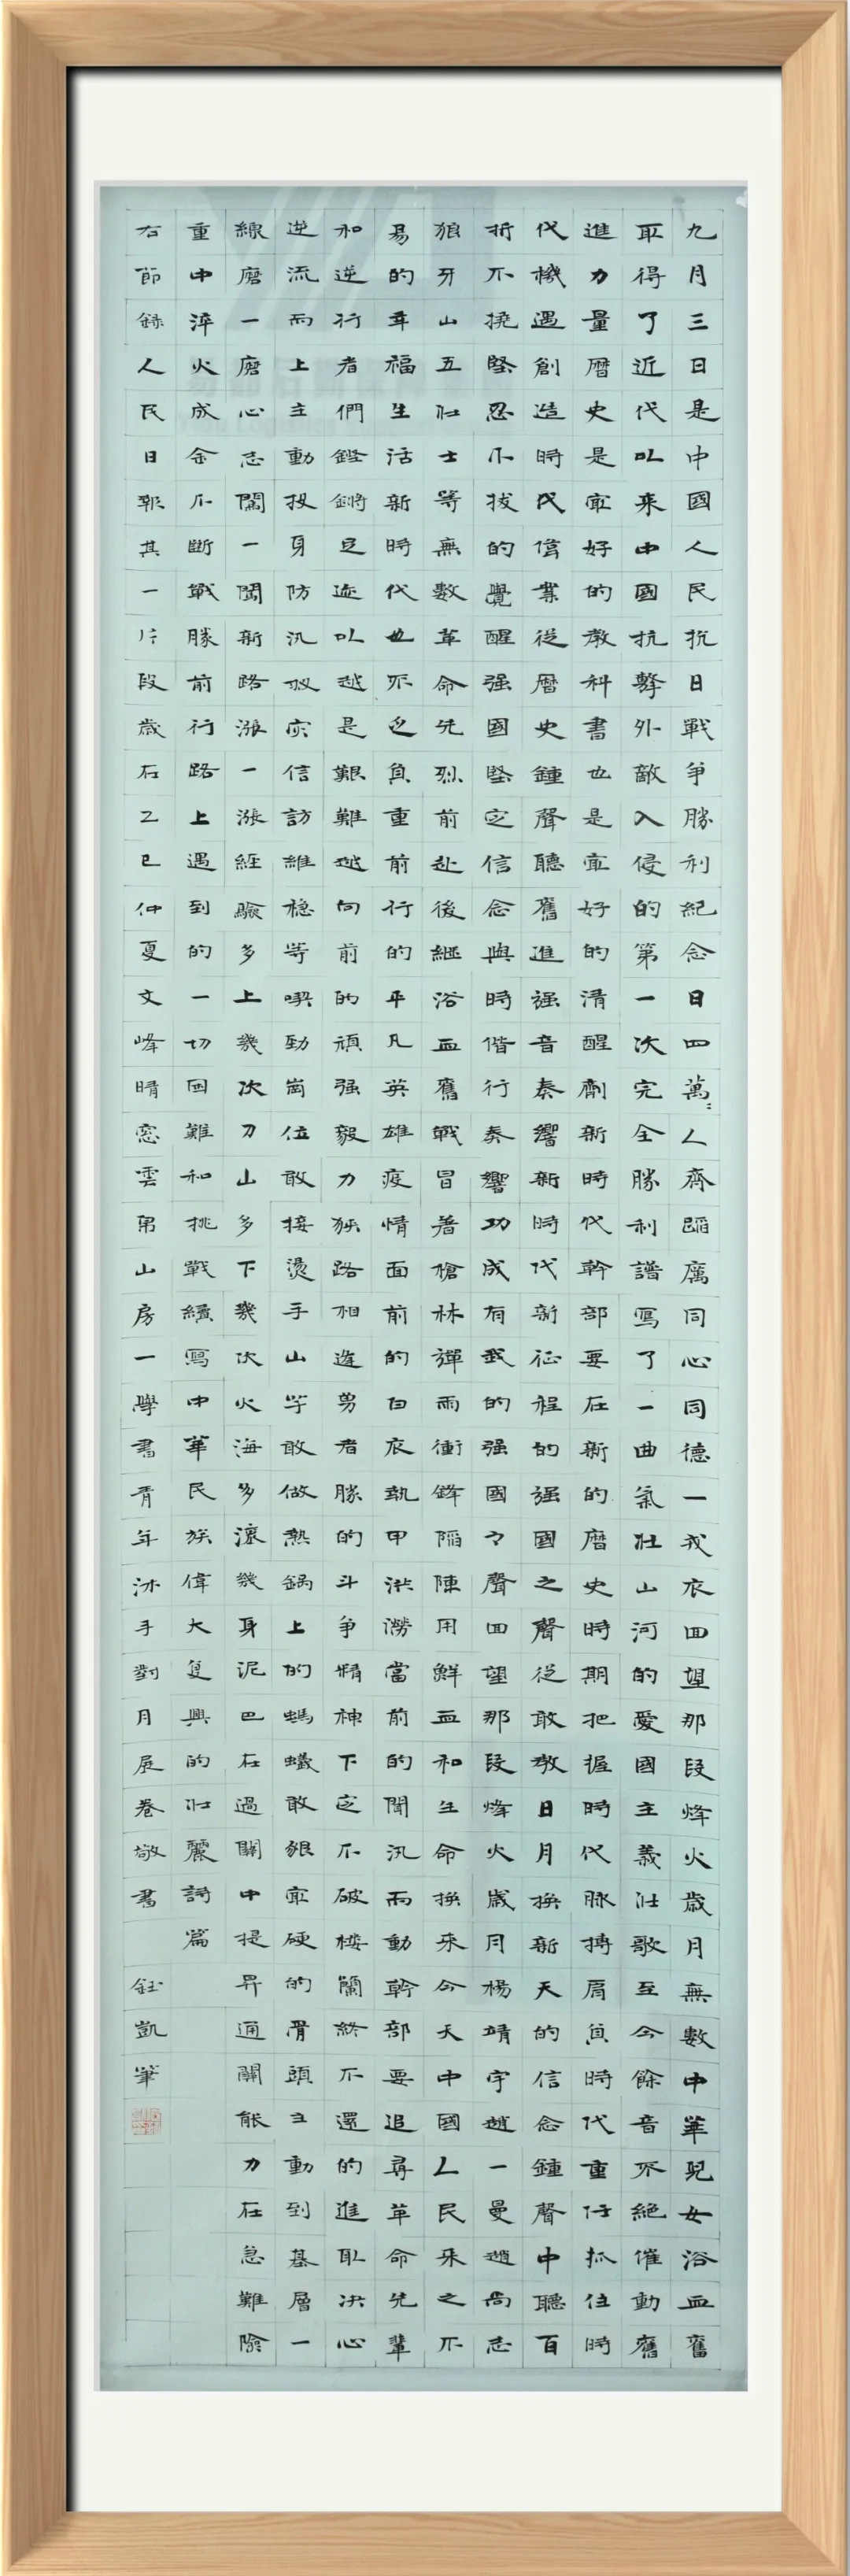 九月三日是中國人民抗日戰爭勝利紀念日四萬萬人齊蹈厲同心同德一戎衣回望那段烽火歲月無數中華兒女浴血奮
取得了近代以來中國抗擊外敵入侵的第一次完全勝利譜寫了一曲氣壯山河的愛國主義壯歌至今餘音不絕催動奮
進力量曆史是最好的教科書也是最好的清醒劑新時代幹部要在新的曆史時期把握時代脈搏肩負時代重任抓住時
代機遇創造時代偉業從曆史鍾聲聽奮進強音奏響新時代新征程的強國之聲從敢教日月換新天的信念鍾聲中聽百
折不撓堅忍不拔的覺醒强國堅定信念與時偕行奏響功成有我的强國之聲回望那段烽火歲月楊靖宇趙一曼趙尚志
狼牙山五壯士等無數革命先烈前赴後繼浴血奮戰冒着槍林彈雨衝鋒陷陳用鮮血和生命換來今天中國人民來之不
易的幸福生活新時代也不乏負重前行的平凡英雄疫情面前的白衣執甲洪澇當前的聞汛而動幹部要追尋革命先輩
和逆行者們鏗鏘足迹以越是艱難越向前的頑强毅力狹路相逢勇者勝的斗争精神下定不破樓蘭終不還的進取決心
逆流而上主動投身防汛救灾信訪維穩等喫勁崗位敢接燙手山芋敢做熱鍋上的螞蟻敢啃最硬的骨頭主動到基層一
線磨一磨心志闖一闖新路漲一漲經驗多上幾次刀山多下幾次火海多滾幾身泥巴在過關中提昇通關能力在急難險
重中淬火成金不斷戰勝前行路上遇到的一切困難和挑戰續寫中華民族偉大复興的壯麗詩篇
右節錄人民日報其一片段歲在乙巳仲夏文峰晴窓雲帛山房一學書青年沐手對月展卷敬書 鈺凱筆